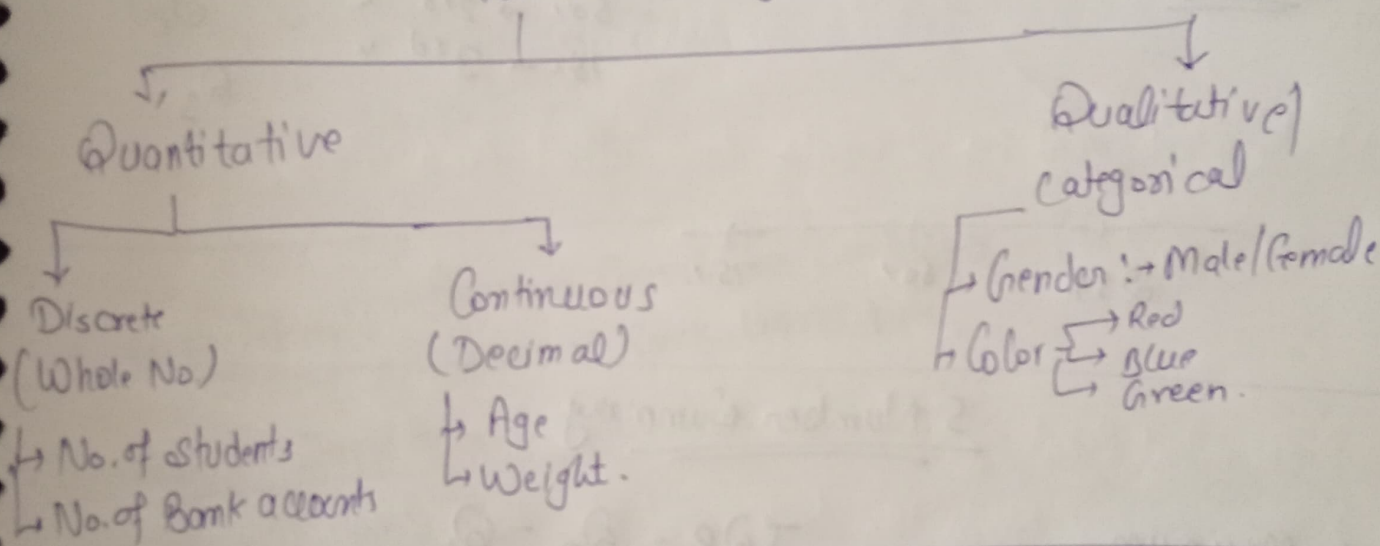 Quantitative
Discrete
(Whole No)
No. of students
No. of Bank accounts
Continuous
(Decimal)
Age
Weight.
Qualitative/
categorical
Gender :→ Male/Female
Color → Red
→ Blue
→ Green.